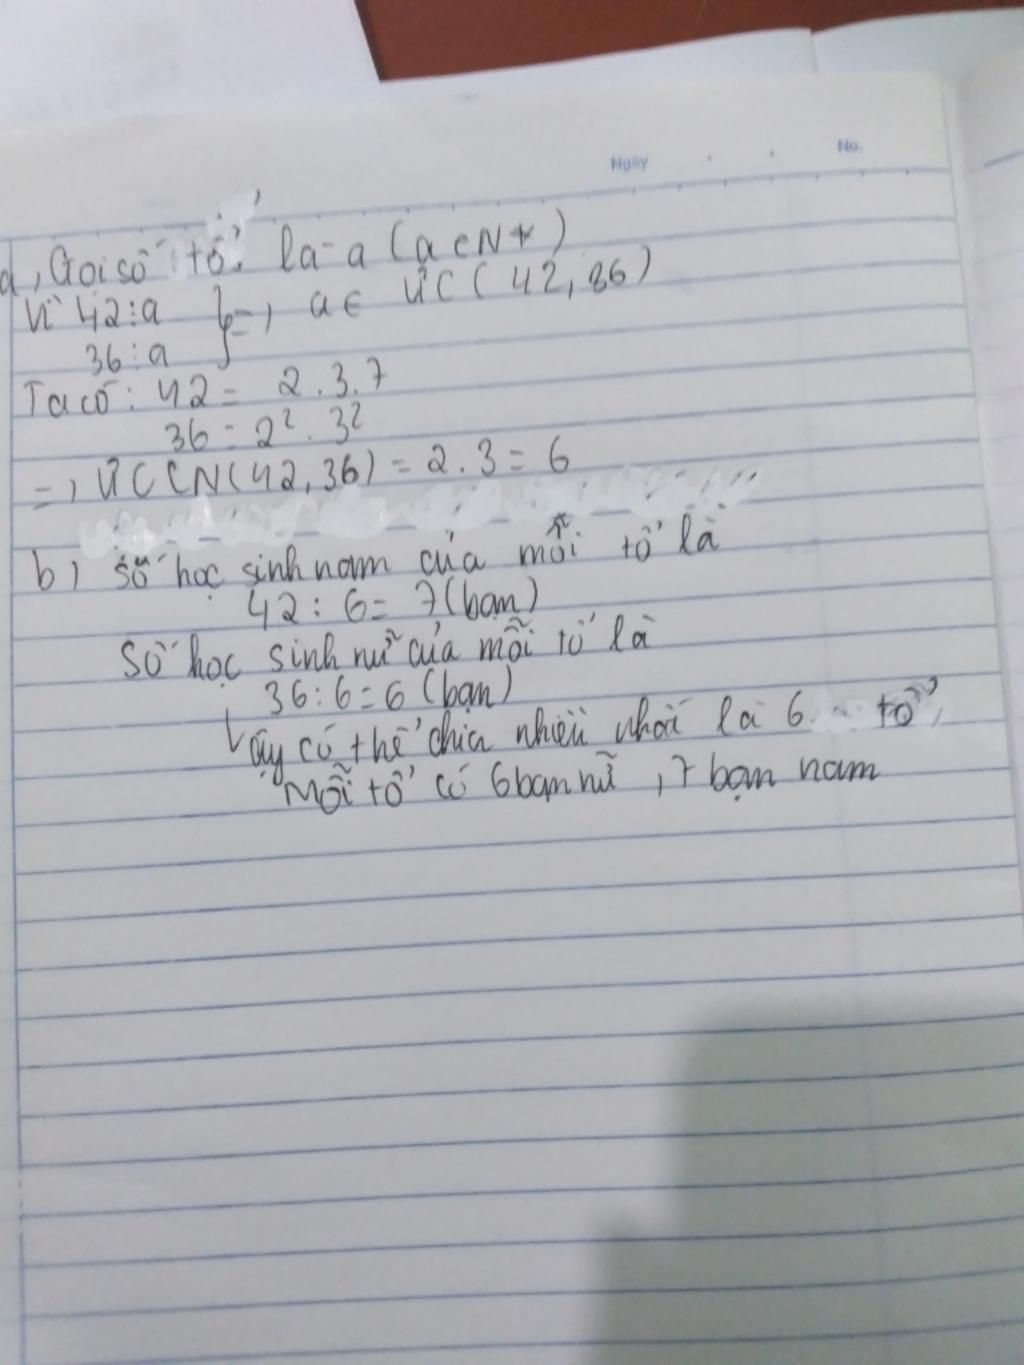 Ngày No.
a, Gọi số tổ là a (a ∈ N*)
Vì 42⋮a } => a ∈ ƯC(42,36)
36⋮a
Ta có: 42 = 2.3.7
36 = 2². 3²
=> ƯCLN(42,36) = 2.3 = 6
b) Số học sinh nam của mỗi tổ là
42 : 6 = 7 (bạn)
Số học sinh nữ của mỗi tổ là
36 : 6 = 6 (bạn)
Vậy có thể chia nhiều nhất là 6 tổ,
Mỗi tổ có 6 bạn nữ, 7 bạn nam